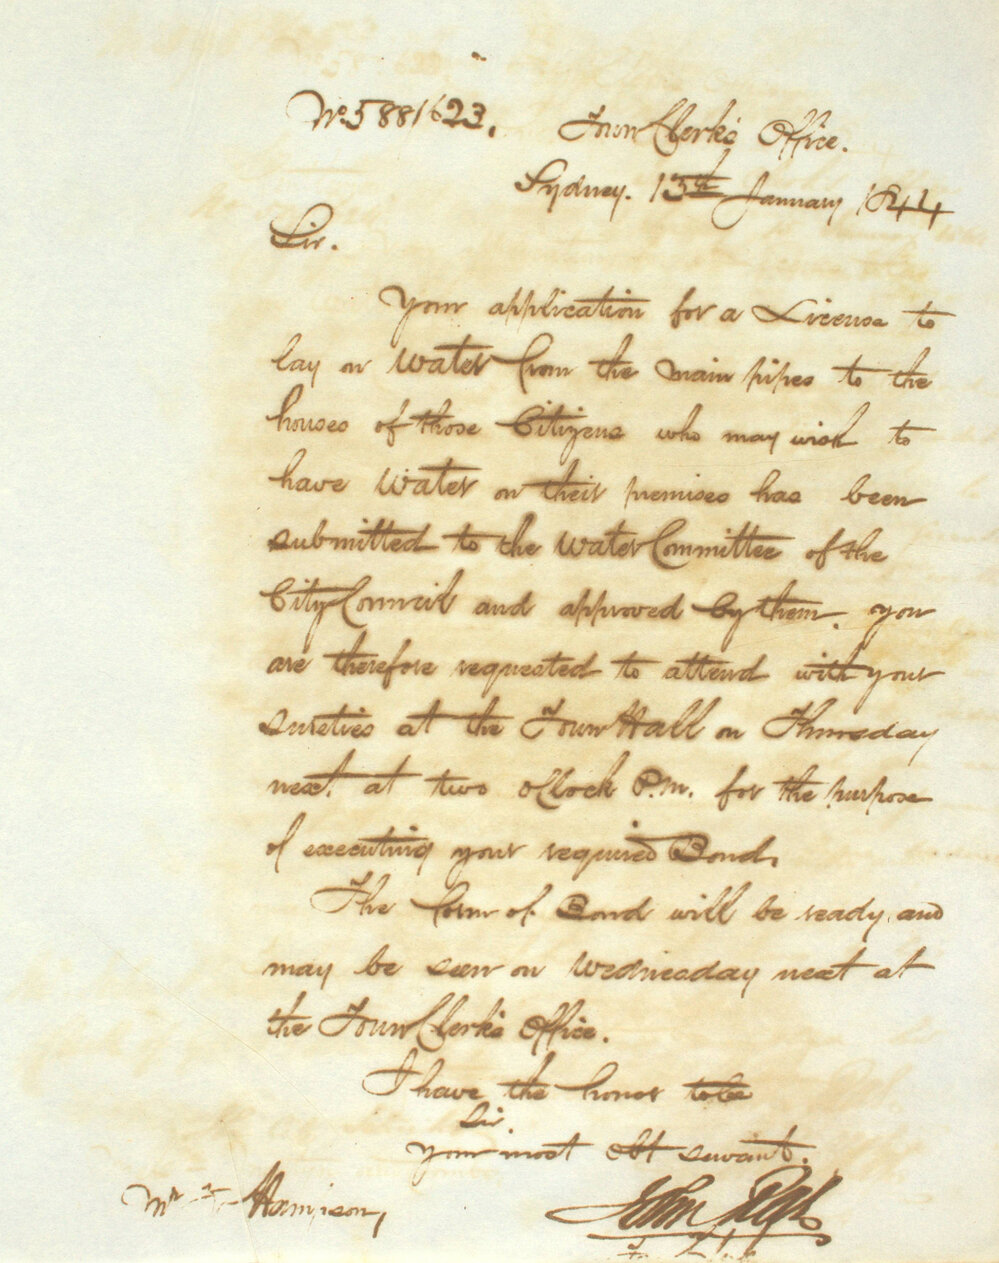 No. 588/623. Town Clerk's Office.
Sydney. 13th January 1844
Sir.
Your application for a License to
lay on Water from the main pipes to the
houses of those Citizens who may wish to
have Water on their premises has been
submitted to the Water Committee of the
City Council and approved by them. you
are therefore requested to attend with your
sureties at the Town Hall on Thursday
next. at two oClock P.m. for the purpose
of executing your required Bond.
The form of Bond will be ready, and
may be seen on Wednesday next at
the Town Clerk's Office.
I have the honor to be
Sir.
your most obt servant.
Mr Harrison,
John
Town Clerk